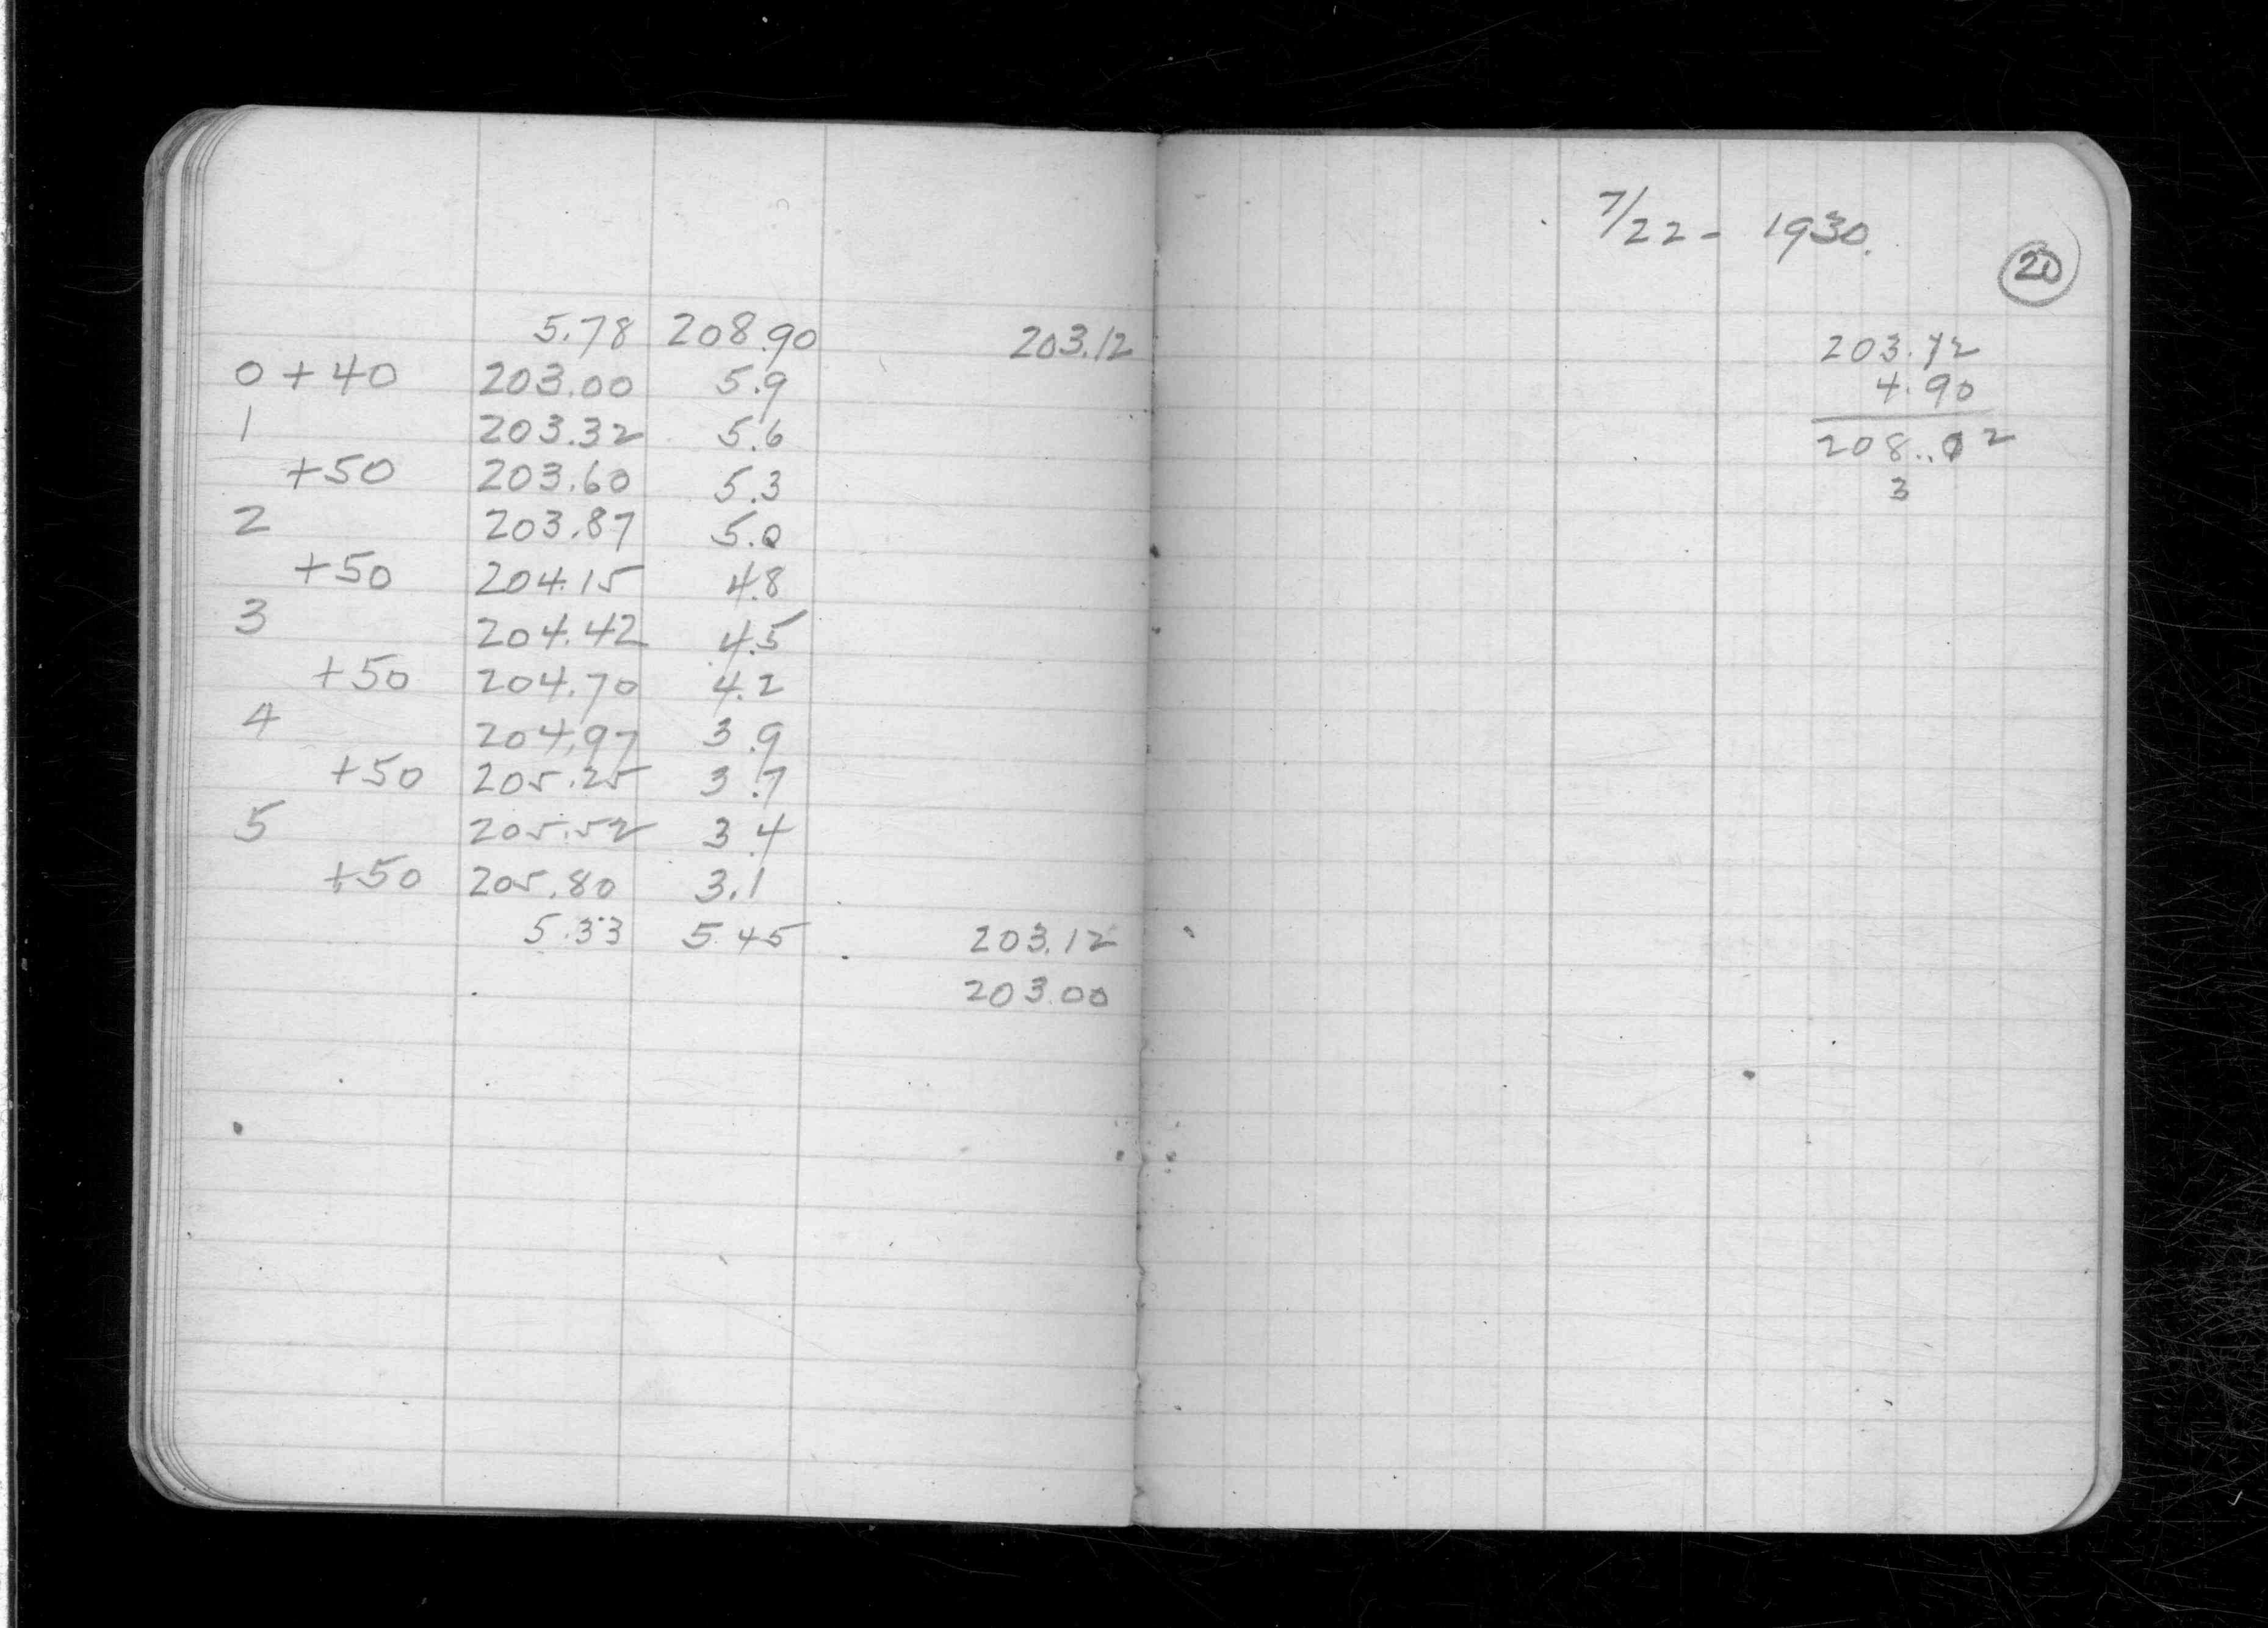 5.78 208.90 203.12
0+40 203.00 5.9
1 203.32 5.6
+50 203.60 5.3
2 203.87 5.0
+50 204.15 4.8
3 204.42 4.5
+50 204.70 4.2
4 204.97 3.9
+50 205.25 3.7
5 205.52 3.4
+50 205.80 3.1
5.33 5.45 203.12
203.00
7/22 - 1930.
20
203.12
4.90
208.02
3